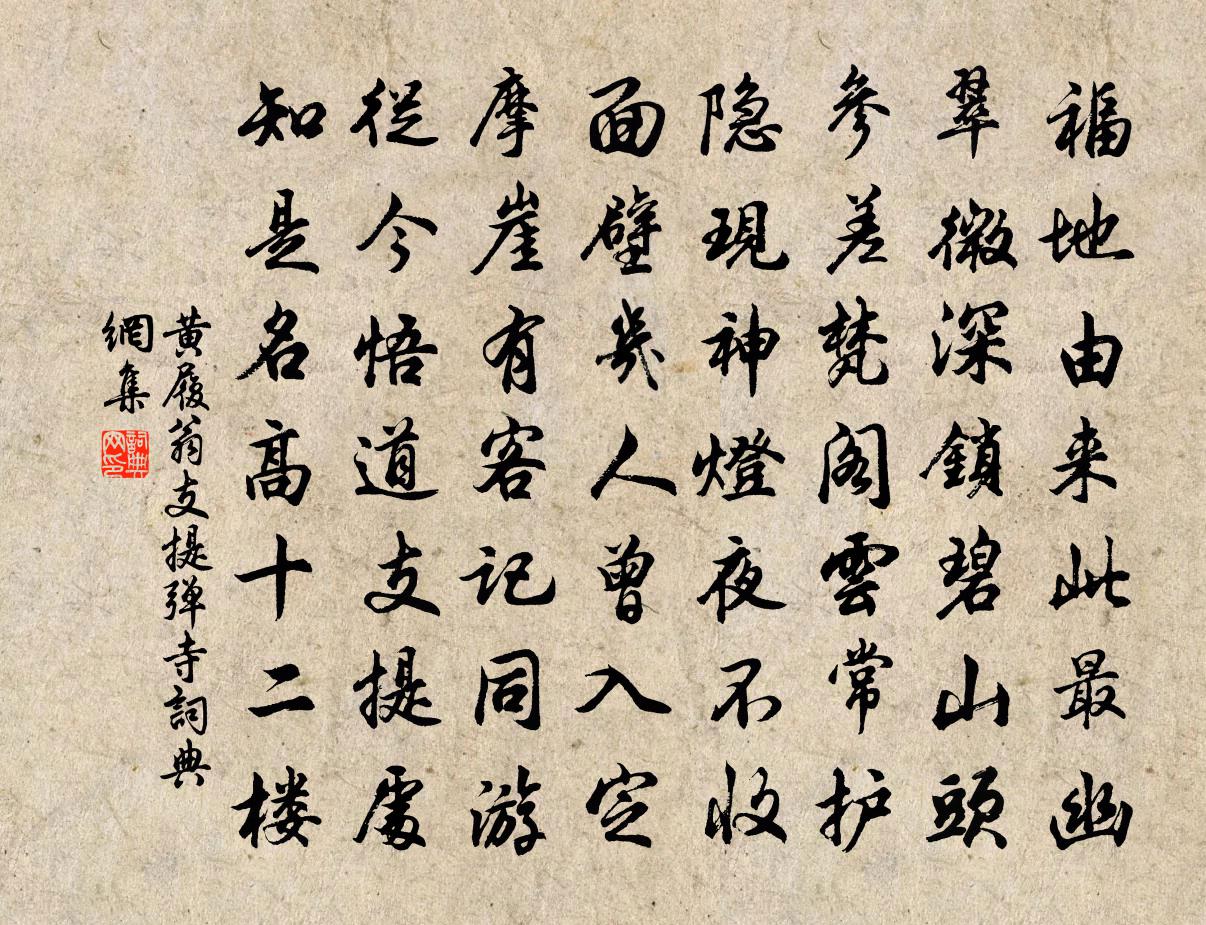 福地由来此最幽
翠微深鎖碧山頭
參差梵阁雲常护
隐現神燈夜不收
面壁幾人曾入定
摩崖有客记同游
從今悟道支提處
知是名高十二楼
黄履翁支提弹寺詞典
網集
詞典网印